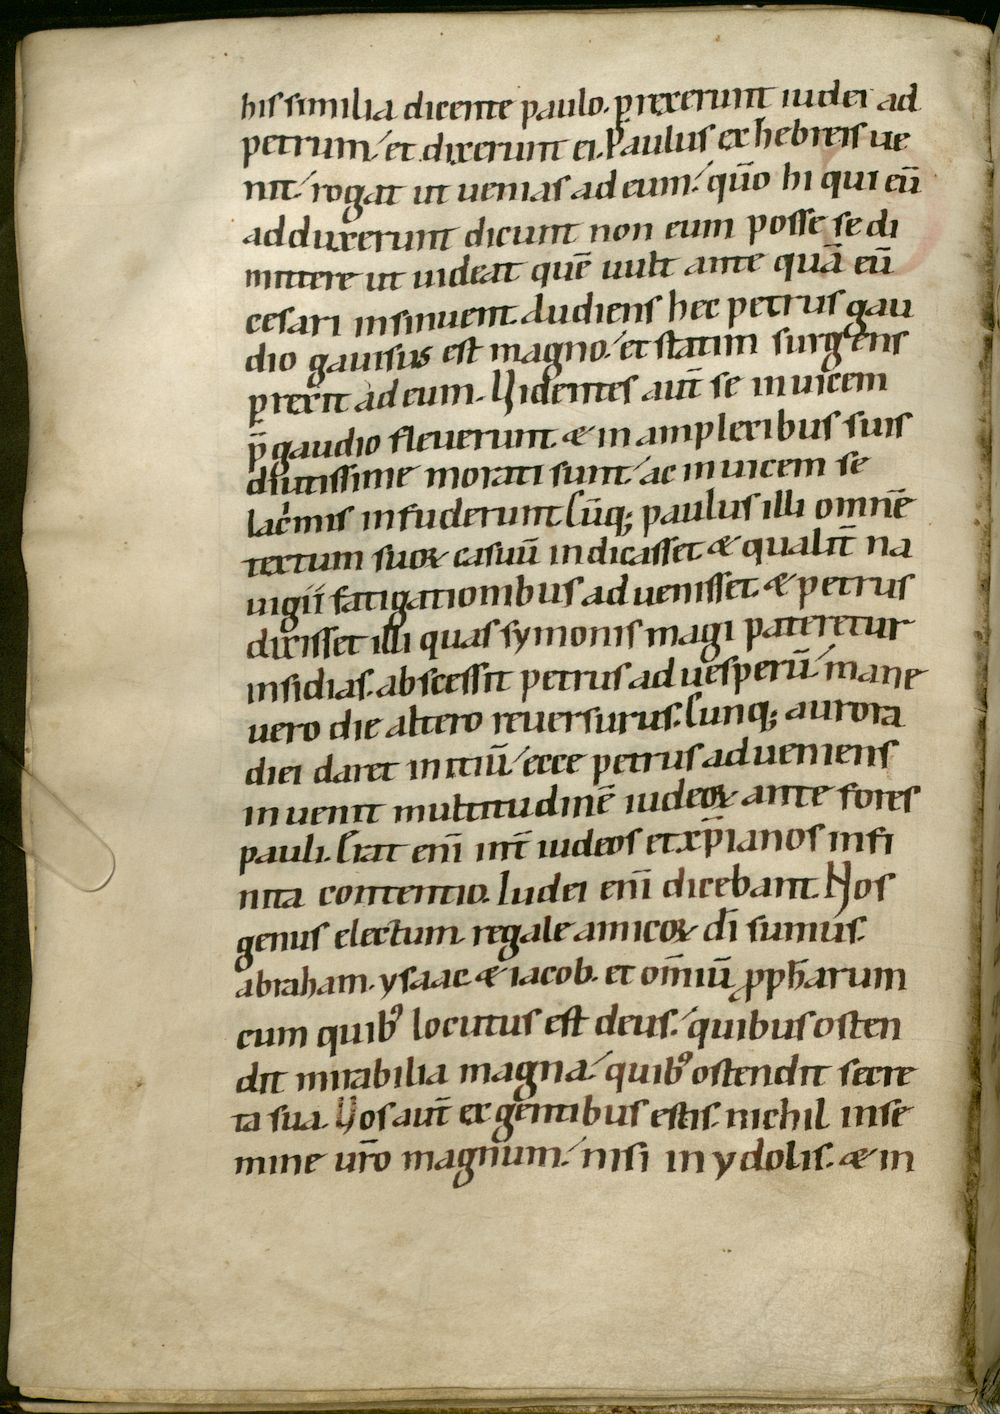 his similia dicente paulo. p̱rexerunt iudei ad
petrum ́ et dixerunt ei. Paulus ex hebreis ue
nit ́ rogat ut uenias ad eum ́ qūo hi qui eū
adduxerunt dicunt non eum posse se di
mittere ut uideat quē uult ante quā eū
cesari insinuent. Audiens hec petrus gau
dio gauisus est magno ́ et statim surgens
p̱rexit ad eum. Uidentes aut̄ se inuicem
p̄ gaudio fleuerunt. & in amplexibus suis
diutissime morati sunt ́ ac inuicem se
lac̄mis infuderunt. Cūq; paulus illi omnē
textum suoꝝ casuū indicasset & qualit̄ na
uigii fatigationibus aduenisset. & petrus
dixisset illi quas symonis magi pateretur
insidias. abscessit petrus ad uesperū ́ mane
uero die altero reuersurus. Cunq; aurora
diei daret initiū ́ ecce petrus adueniens
inuenit multitudinē iudeoꝝ ante fores
pauli. Erat enī int̄ iudeos et xp̄ianos infi
nita contentio. Iudei enī dicebant. Nos
genus electum regale amicoꝝ dī sumus.
abraham. ysaac & iacob. et om̄iū ꝓph̄arum
cum quibꝰ locutus est deus. ́ quibus osten
dit mirabilia magna ́ quibꝰ ostendit secre
ta sua. Uos aut̄ ex gentibus estis. nichil in se
mine ur̄o magnum ́ nisi in ydolis. & in